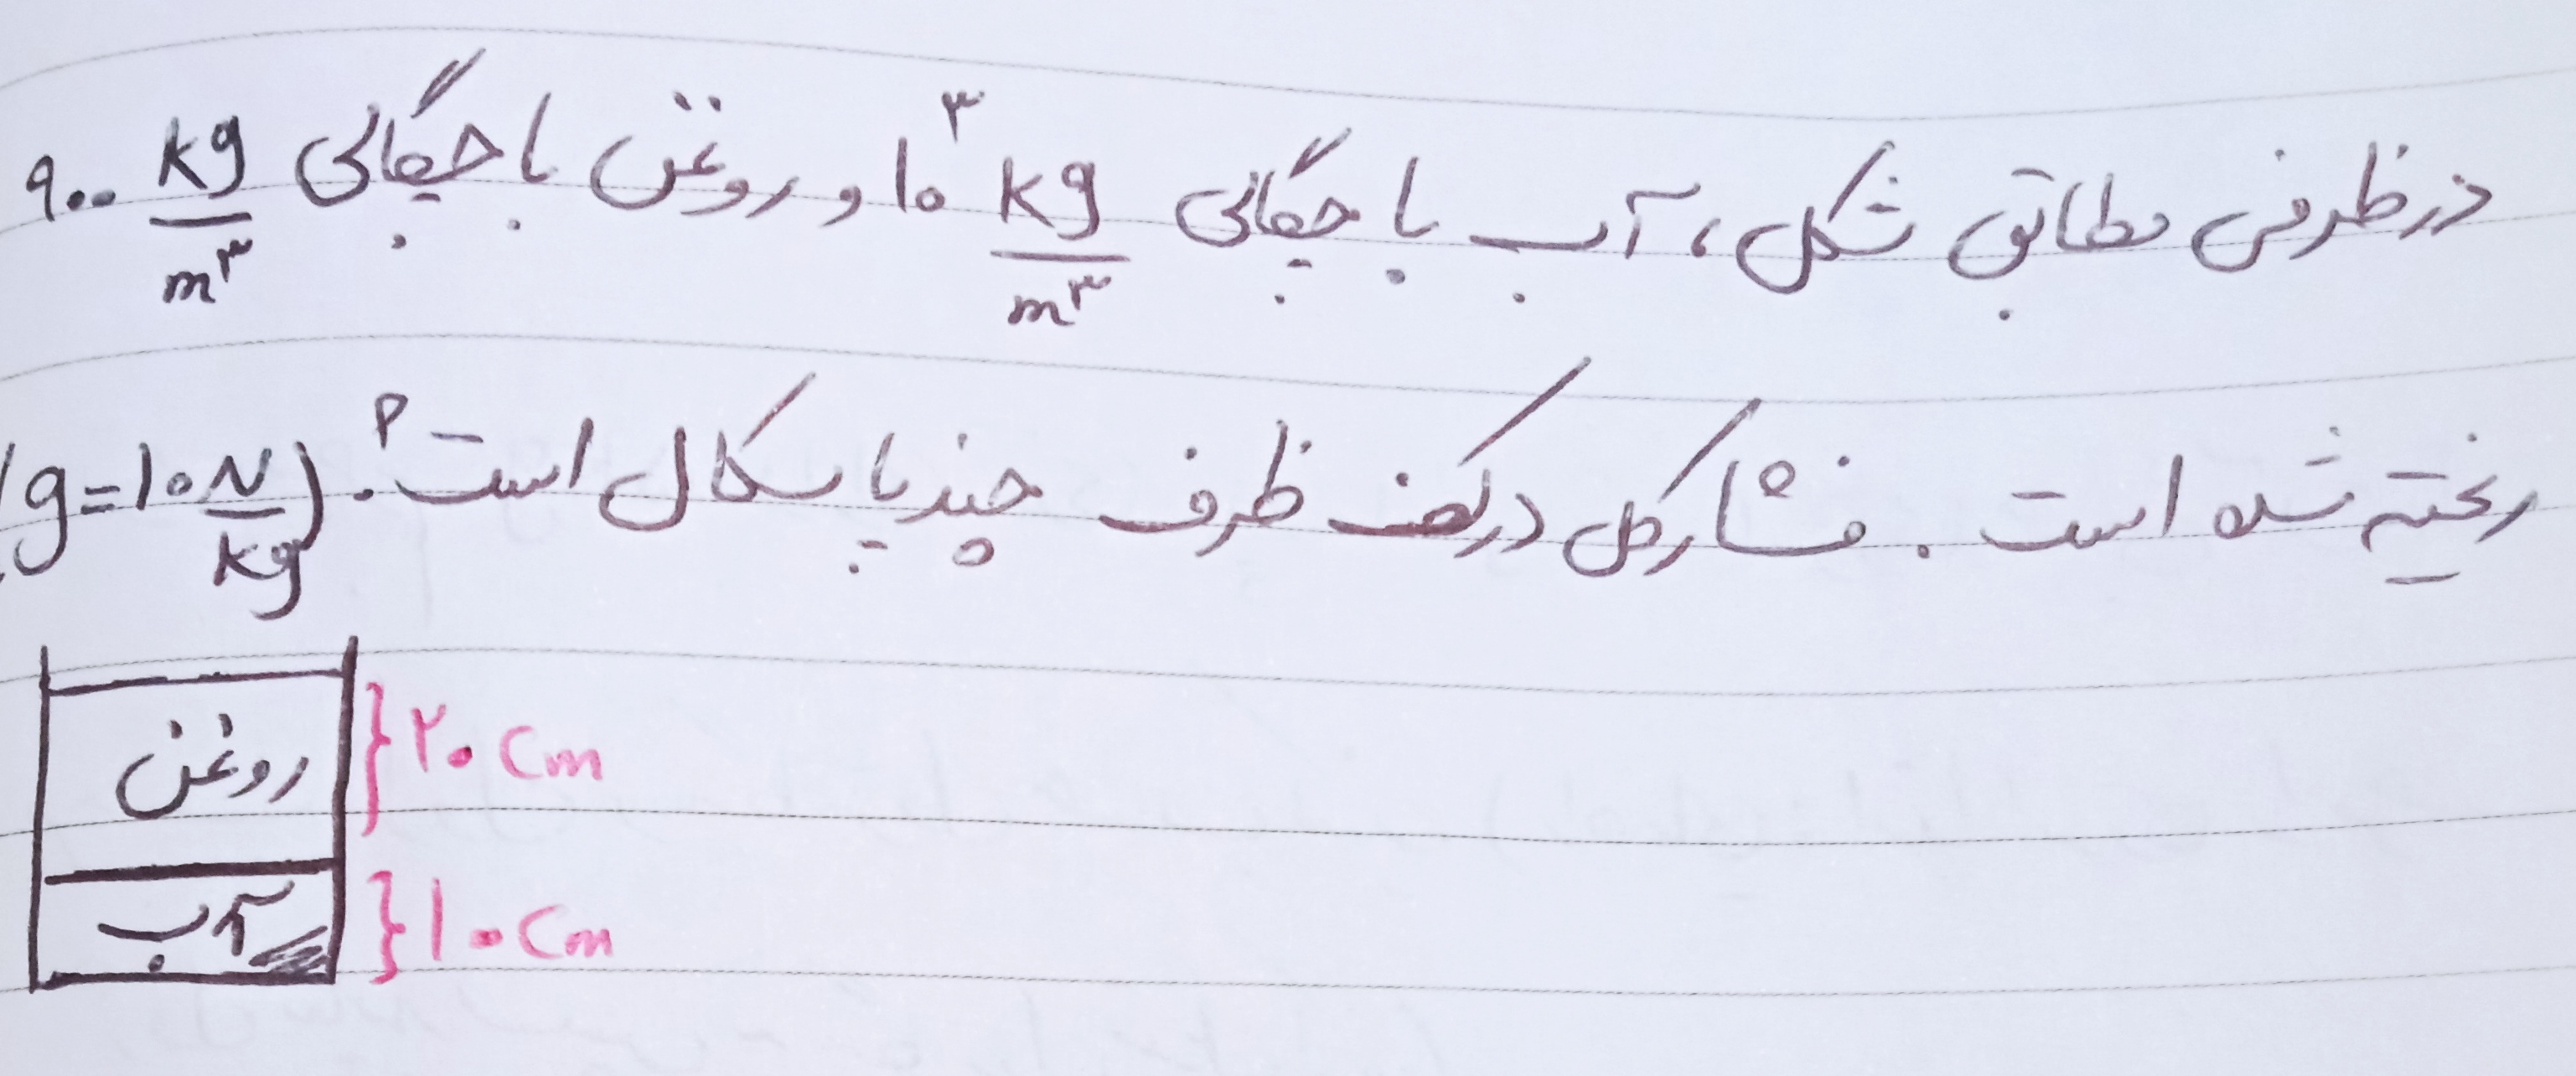 در ظرفی مطابق شکل، آب با چگالی ۱۰^۳ kg/m^۳ و روغن با چگالی ۹۰۰ kg/m^۳
ریخته شده است. فشار کل در کف ظرف چند پاسکال است؟ (g=۱۰ N/kg)
روغن } ۲۰ cm
آب } ۱۰ cm